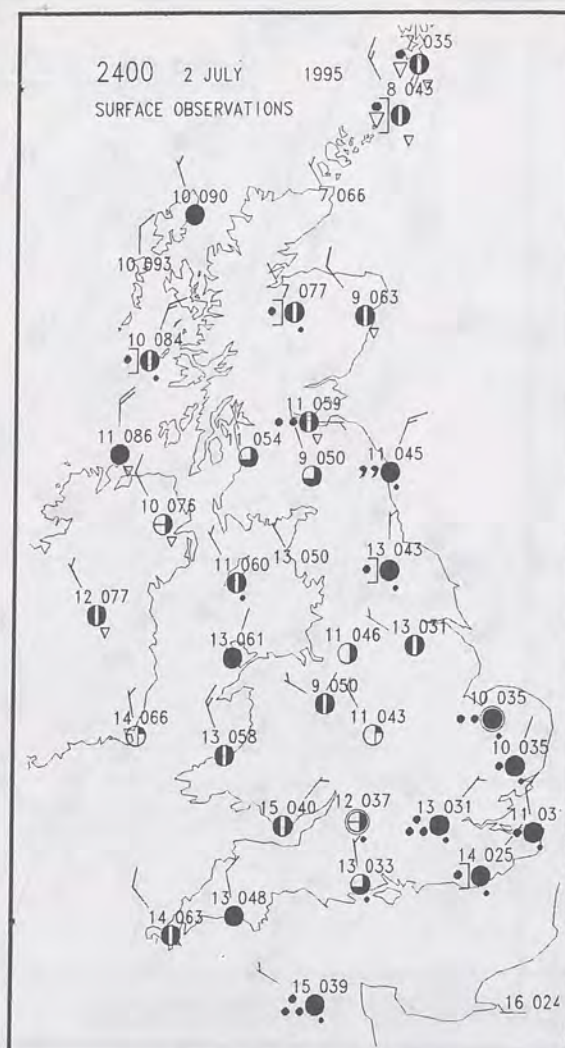 2400 2 JULY 1995
SURFACE OBSERVATIONS
035
8 043
7 066
10 090
10 093
7 077
9 063
10 084
11 059
11 086
11 054
9 050
11 045
10 076
11 060
13 050
13 043
12 077
13 061
11 046
13 031
9 050
10 035
14 066
13 058
11 043
10 035
15 040
12 037
13 031
11 03
13 033
14 025
14 063
13 048
15 039
16 024